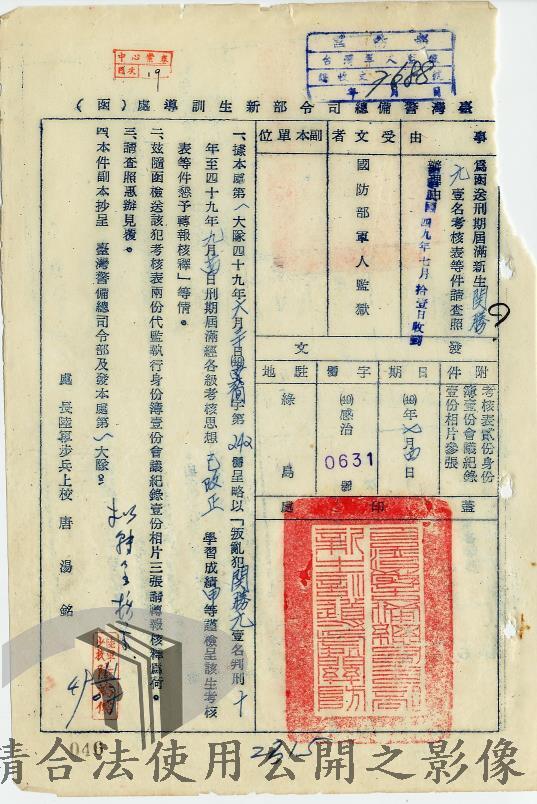 臺灣警備總司令部新生訓導處（函）
事由
為函送刑期屆滿新生関勝
元壹名考核表等件請查照
辦理由
四九年七月拾壹日收到
受文者
國防部軍人監獄
副本單位
發文
附件
考核表貳份身份
簿壹份會議紀錄
壹份相片參張
日期
(49)年七月 日
字號
(49)感治
0631號
駐地
綠島
蓋印處
一、據本處第八大隊四十九年六月 日 字第 號呈略以「叛亂犯関勝元壹名判刑十
年至四十九年九月 日刑期屆滿經各級考核思想已改正學習成績甲等謹檢呈該生考核
表等件懇予轉報核釋」等情。
二、茲隨函檢送該犯考核表兩份代監執行身份簿壹份會議紀錄壹份相片三張請轉報核釋為荷。
三、請查照惠辦見復。
四、本件副本抄呈 臺灣警備總司令部及發本處第八大隊。
處長陸軍步兵上校 唐湯銘
中心案卷
頁次 19
台灣軍人監獄
總收文 號
年 月 日
046
請合法使用公開之影像